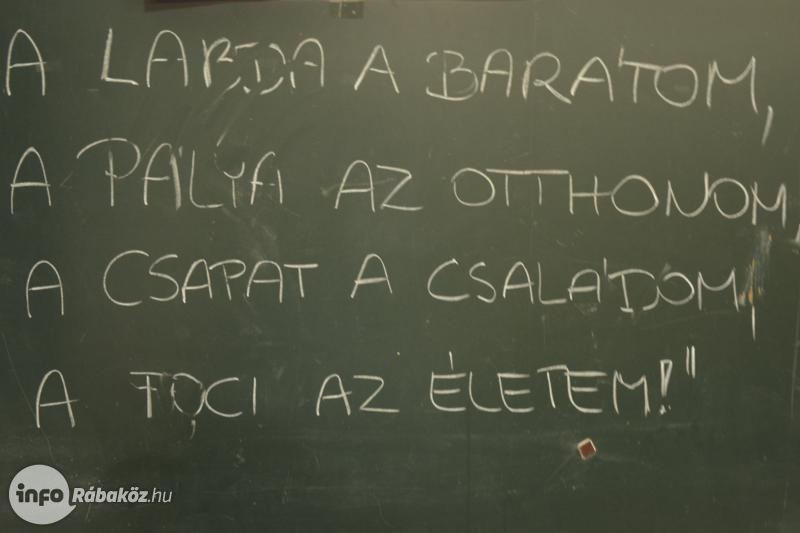 A LABDA A BARÁTOM,
A PÁLYA AZ OTTHONOM,
A CSAPAT A CSALÁDOM,
A FOCI AZ ÉLETEM!"
infoRábaköz.hu